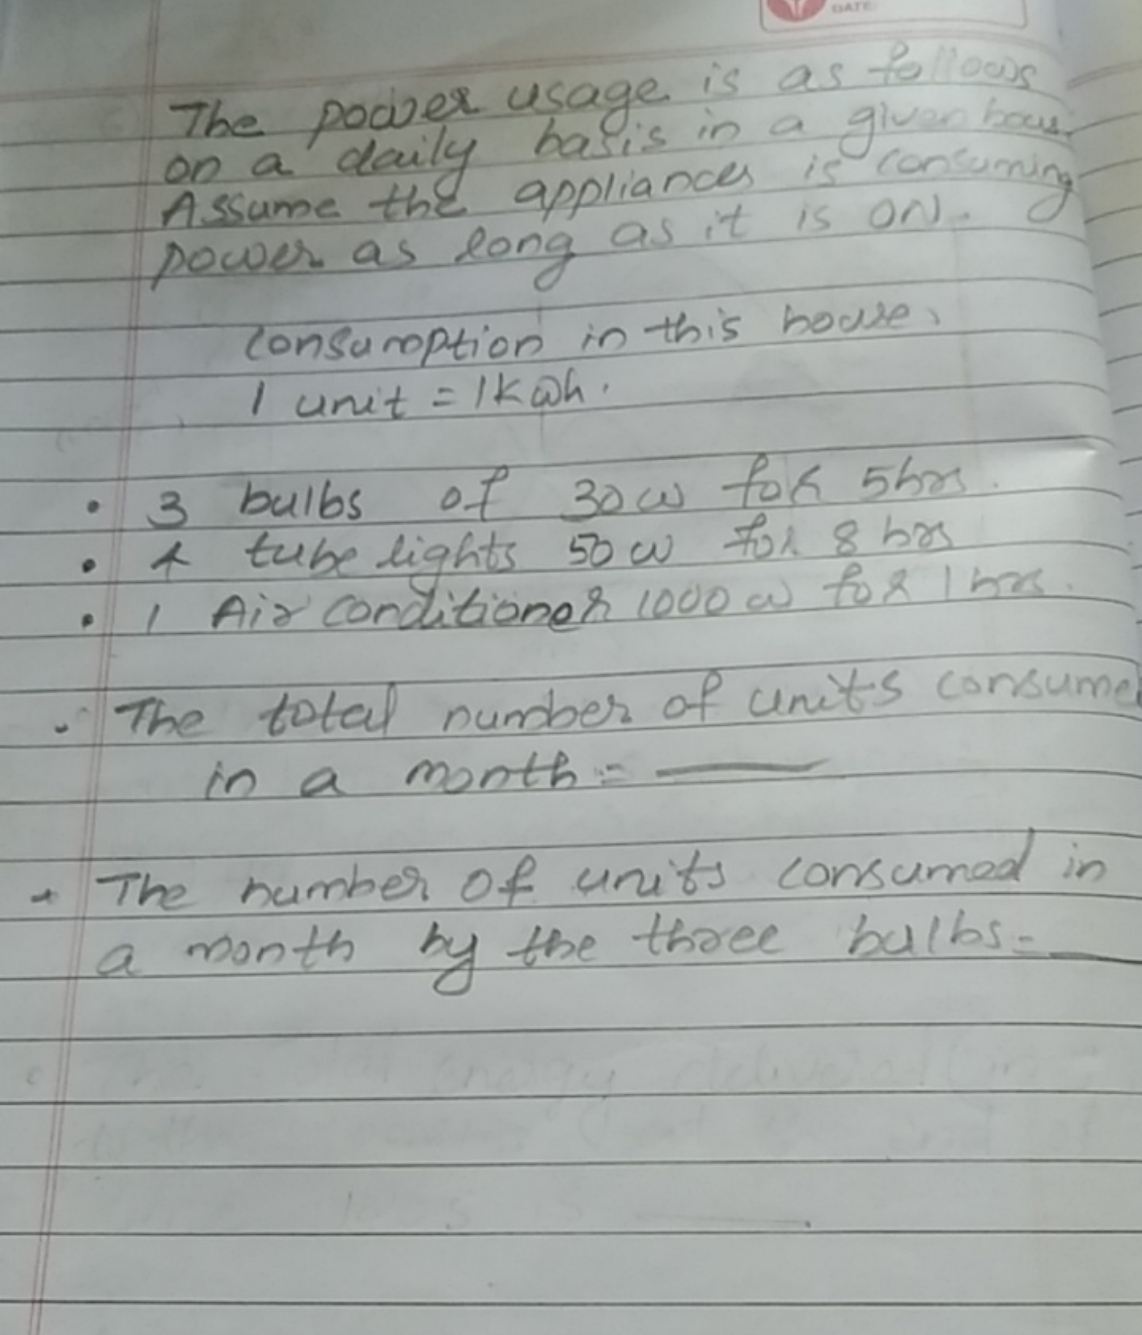 DATE
The power usage is as follows
on a daily basis in a given house.
Assume the appliances is consuming
power as long as it is ON.
consumption in this house.
1 unit = 1kwh.
• 3 bulbs of 30w for 5hrs.
• 4 tube lights 50w for 8 hrs
• 1 Air conditioner 1000w for 1 hrs.
• The total number of units consume
in a month = ____
• The number of units consumed in
a month by the three bulbs = ____